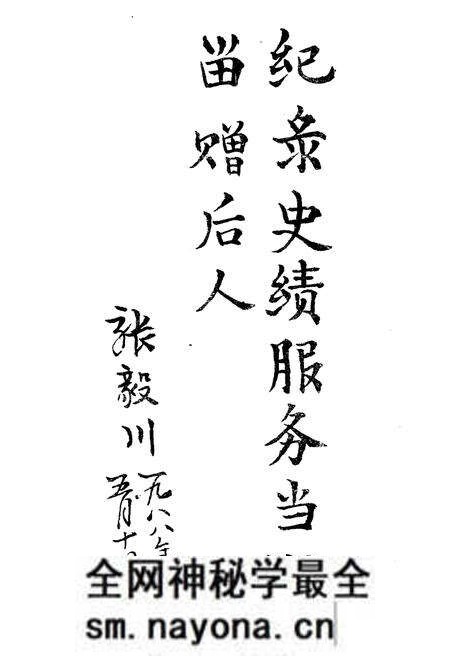 纪录史绩服务当
留赠后人
张毅川
一九八八年
五月十
全网神秘学最全
sm.nayona.cn